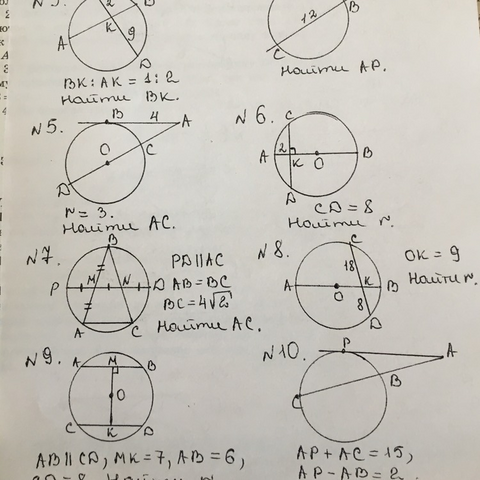 N 3.
2
B
A
K
9
D
BK : AK = 1 : 2
Найти BK.
12
B
C
Найти AP.
N 5.
B
4
A
O
C
D
r = 3.
Найти AC.
N 6.
C
A
2
K
O
B
D
CD = 8
Найти r.
N 7.
B
P
M
N
D
A
C
PD || AC
AB = BC
BC = 4√2
Найти AC.
N 8.
C
18
A
O
K
B
8
D
OK = 9
Найти r.
N 9.
A
M
B
O
C
K
D
AB || CD, MK = 7, AB = 6,
N 10.
P
A
B
C
AP + AC = 15,
AP - AB = 2.